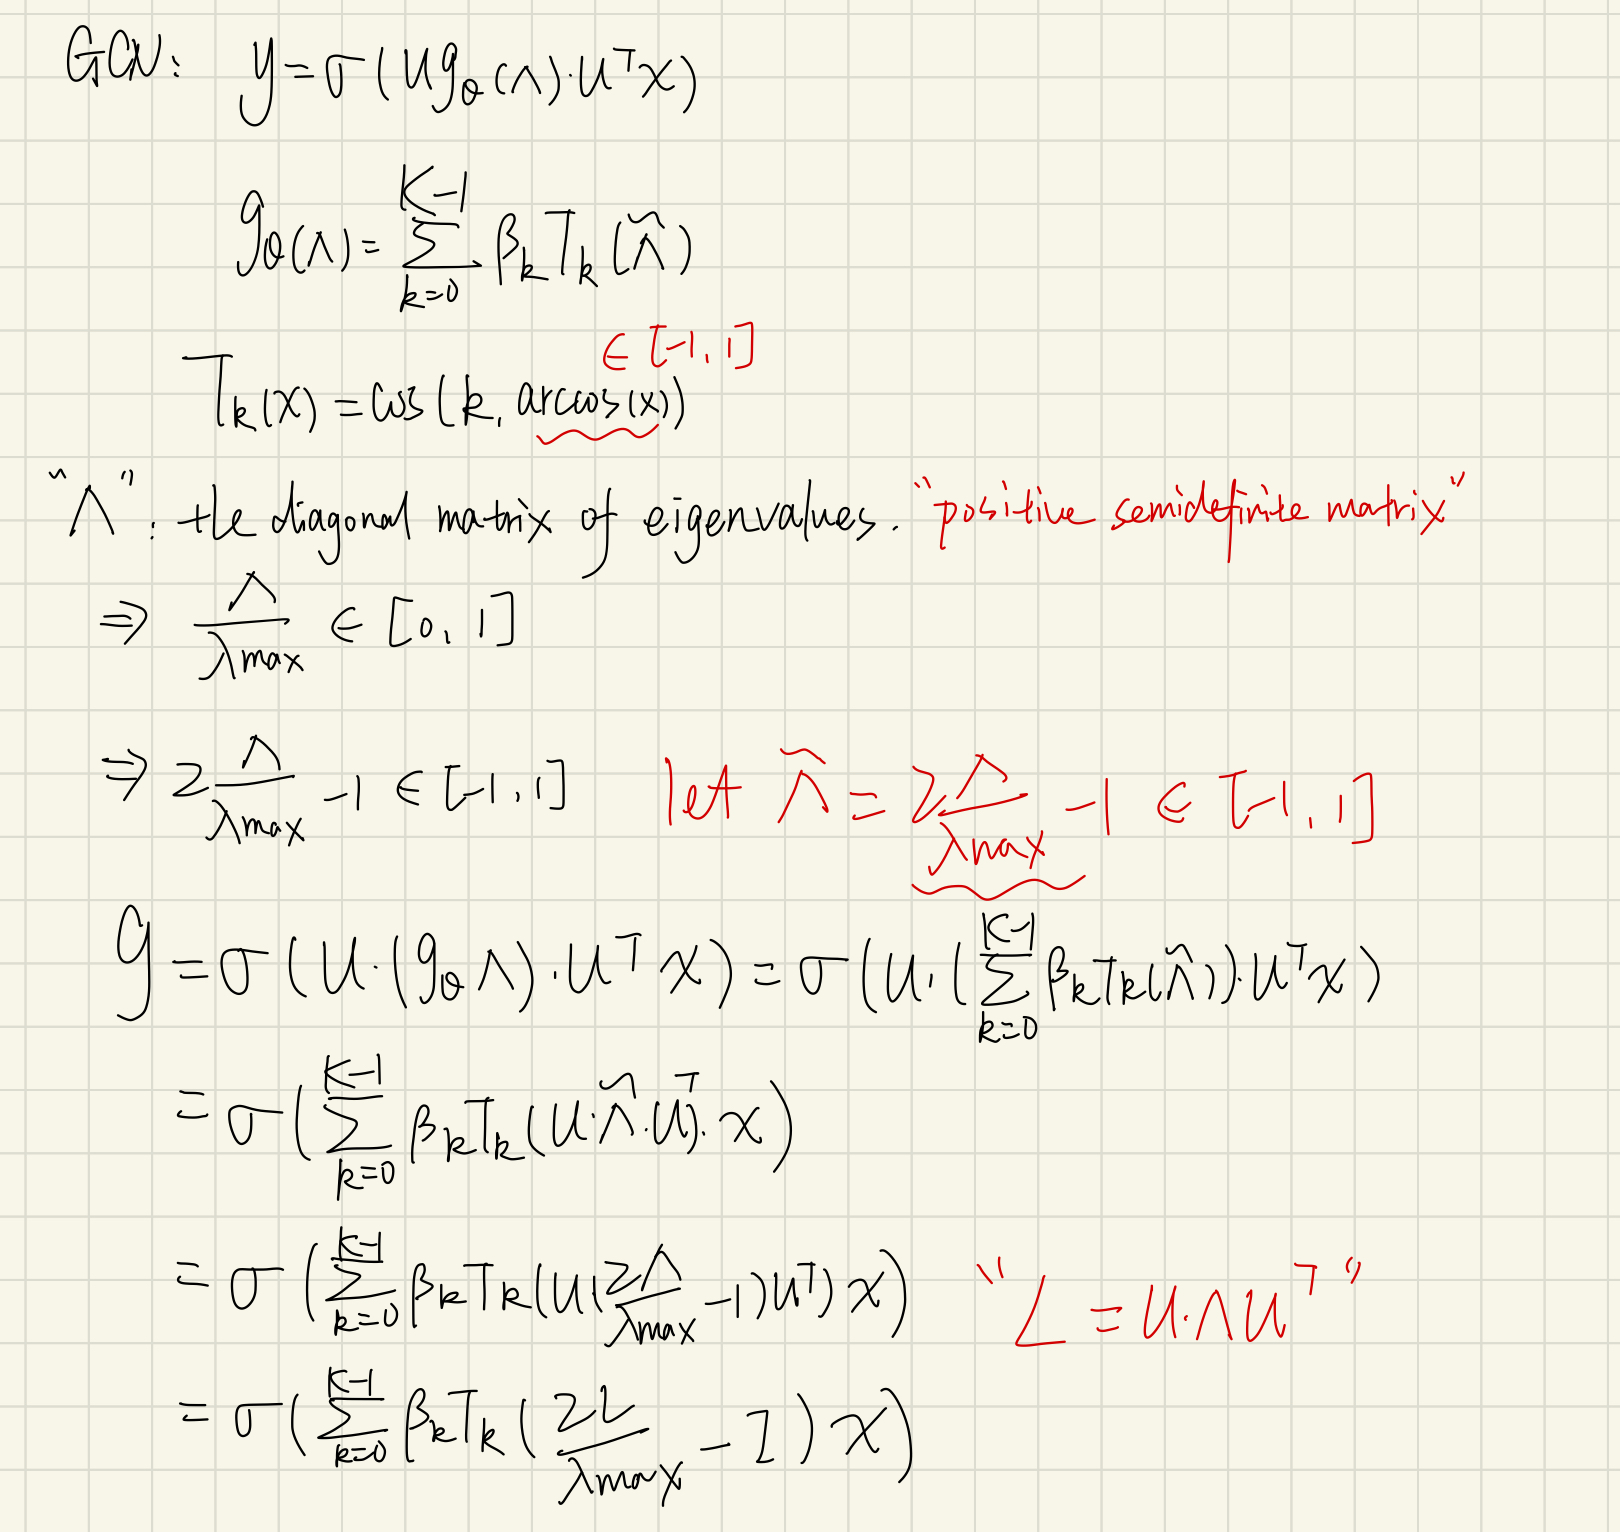 GCN: y = σ(U g_θ(Λ)·U^T x)
g_θ(Λ) = Σ_{k=0}^{K-1} β_k T_k(Λ̃)
∈ [-1, 1]
T_k(x) = cos(k, arccos(x))
"Λ": the diagonal matrix of eigenvalues. "positive semidefinite matrix"
⇒ Λ/λmax ∈ [0, 1]
⇒ 2 Λ/λmax -1 ∈ [-1, 1] let Λ̃ = 2Λ/λmax -1 ∈ [-1, 1]
y = σ(U·(g_θ Λ)·U^T x) = σ(U·(Σ_{k=0}^{K-1} β_k T_k(Λ̃))·U^T x)
= σ(Σ_{k=0}^{K-1} β_k T_k(U·Λ̃·U^T)·x)
= σ(Σ_{k=0}^{K-1} β_k T_k(U(2Λ/λmax -1)U^T) x) "L = U·ΛU^T"
= σ(Σ_{k=0}^{K-1} β_k T_k(2L/λmax - I) x)